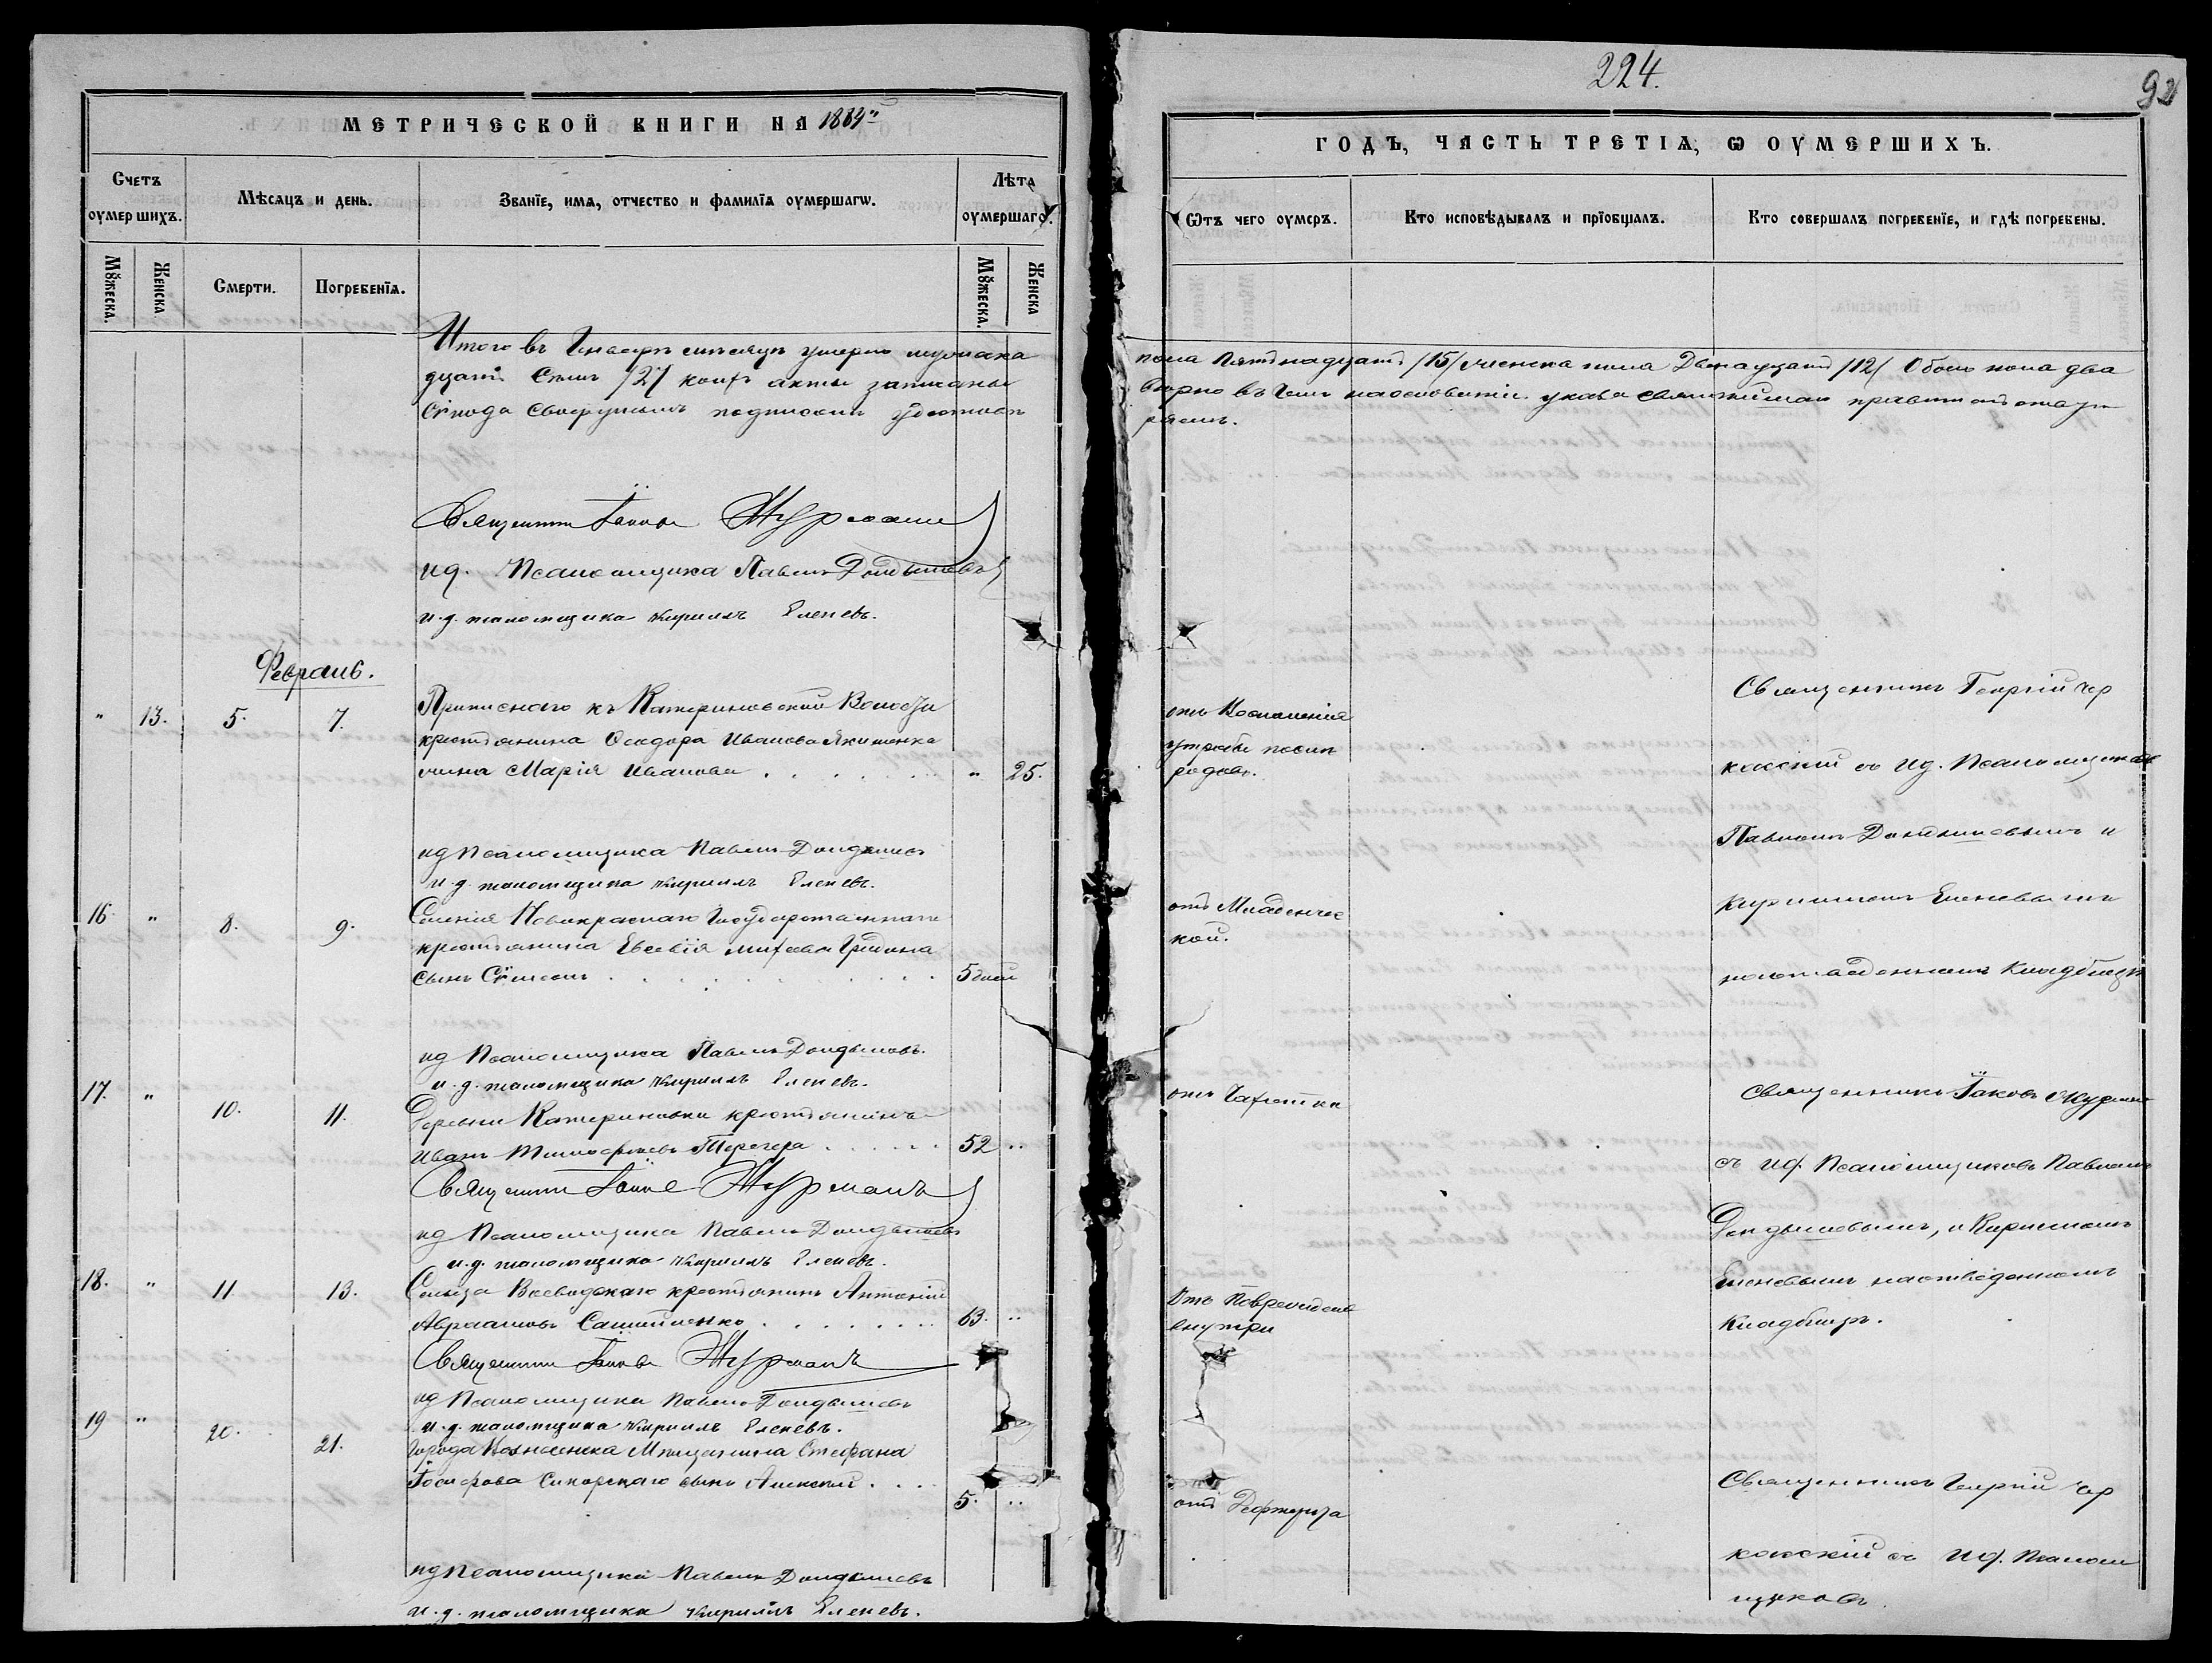 МЕТРИЧЕСКОЙ КНИГИ НА 1884й
Счетъ оумершихъ.
Мѣсяцъ и день.
Званїе, имя, отчество и фамилїя оумершагѡ.
Лѣта оумершаго.
Мꙋжеска.
Женска
Смерти.
Погребенїя.
Мꙋжеска.
Женска
Итого въ Январѣ мѣсяцѣ умерло мужска
дцать семь /27/ коихъ акты записаны
Сѵнода своеручнымъ подписомъ удостовѣ
Священникъ Іаковъ Журманъ
ид. Псаломщика Павелъ Дондышевъ
и.д. псаломщика Кириллъ Еленевъ.
Февраль.
" 13. 5. 7.
Приписнаго къ Катериновской Волости
крестьянина Ѳеодора Иванова Якименка
жена Марія Иванова " 25.
ид Псаломщика Павелъ Дондышевъ
и.д. псаломщика Кириллъ Еленевъ.
16. " 8. 9.
Селенія Новокраснаго Государственнаго
крестьянина Евсевія Михеева
сынъ Сѵмеонъ 5 дней
ид Псаломщика Павелъ Дондышевъ.
и.д. псаломщика Кириллъ Еленевъ.
17. " 10. 11.
Деревни Катериновки крестьянинъ
Иванъ Тимофеевъ 52 "
Священникъ Іаковъ Журманъ
ид Псаломщика Павелъ Дондышевъ
и.д. псаломщика Кириллъ Еленевъ.
18. " 11. 13.
Сельца Воеводскаго крестьянинъ Антоній
Авраамовъ 63. "
Священникъ Іаковъ Журманъ
ид Псаломщика Павелъ Дондышевъ
и.д. псаломщика Кириллъ Еленевъ.
19 " 20. 21.
Города Вознесенска Мѣщанина Стефана
Іосифова Сикорскаго сынъ Алексѣй 5. "
ид Псаломщика Павелъ Дондышевъ
и.д. псаломщика Кириллъ Еленевъ.
224.
92
ГОДЪ, ЧАСТЬ ТРЕТІѦ, Ѡ ОУМЕРШИХЪ.
Ѿтъ чего оумеръ.
Кто исповѣдывалъ и прїобщалъ.
Кто совершалъ погребенїе, и гдѣ погребены.
пола пятнадцать /15/ женска пола Двѣнадцать /12/ Обоего пола два
вѣрно въ чемъ на основаніи указа святѣйшаго правительствую
ряемъ.
отъ Воспаленія
утробы послѣ
родовъ.
Священникъ Георгій Чер
касскій съ ид. Псаломщиковъ
Павломъ Дондышевымъ и
Кирилломъ Еленевымъ
на Кладбищѣ
отъ Младенчес
кой.
отъ Чахотки
Священникъ Іаковъ Журманъ
съ ид. Псаломщиковъ Павломъ
Дондышевымъ, и Кирилломъ
Еленевымъ на отведенномъ
Кладбищѣ.
Отъ Поврежденія
внутри
отъ Дифтерита
Священникъ Георгій Чер
касскій съ ид. Псалом
щиковъ